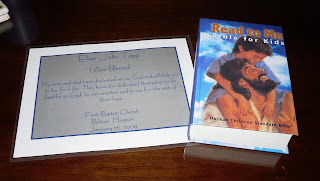 John
I Am Blessed
My mom and dad have dedicated me to God and will help me
to live for Him. They have also dedicated themselves to be
faithful to God, to one another and to me for the rest of
their lives.
First Baptist Church
Bolivar, Missouri
January 15,
Read to Me
Bible for Kids
Holman Christian Standard Bible